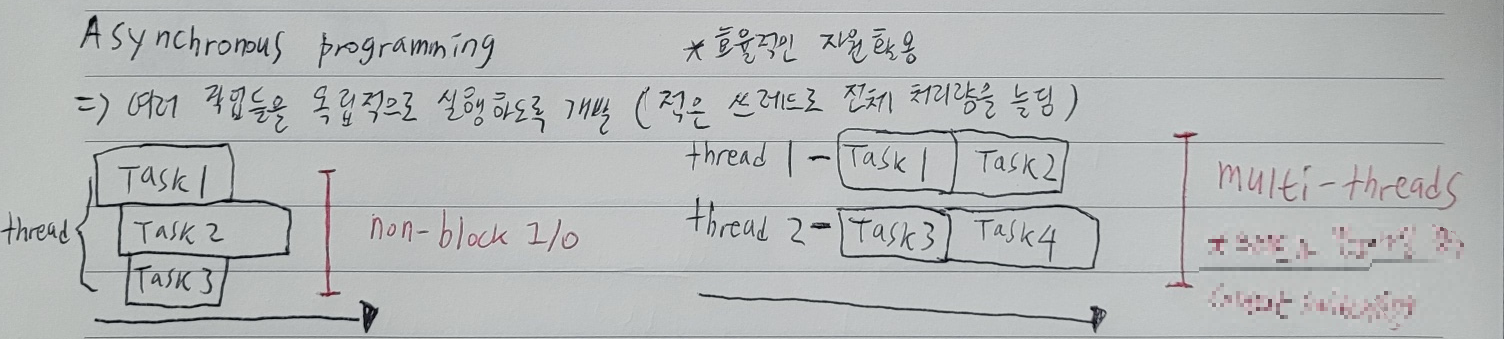 Asynchronous programming
* 효율적인 자원 활용
=> 여러 작업들을 독립적으로 실행하도록 개발 (적은 쓰레드로 전체 처리량을 늘림)
thread
Task 1
Task 2
Task 3
non-block I/O
thread 1 - Task 1 Task2
thread 2 - Task3 Task4
multi-threads